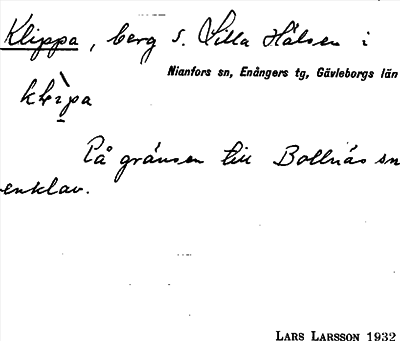 Klippa, berg S. Lilla Hålsen i
Nianfors sn, Enångers tg, Gävleborgs län
klìpa
På gränsen till Bollnäs sn
enklav.
LARS LARSSON 1932